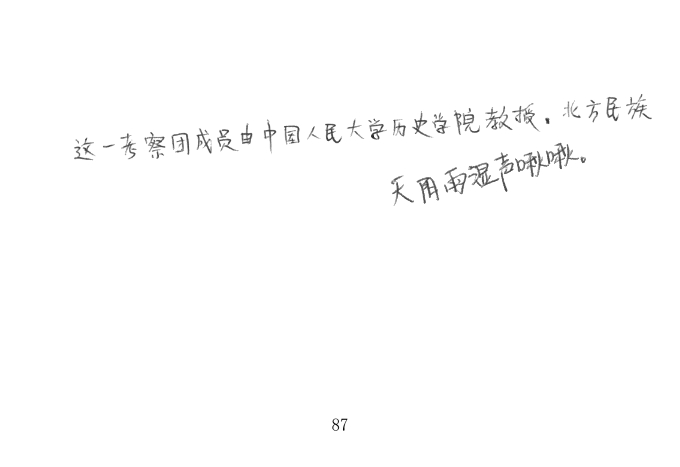 这一考察团成员由中国人民大学历史学院教授，北方民族
天用雨湿声啾啾。
87